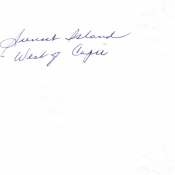 Sunset Island
- West of Capri